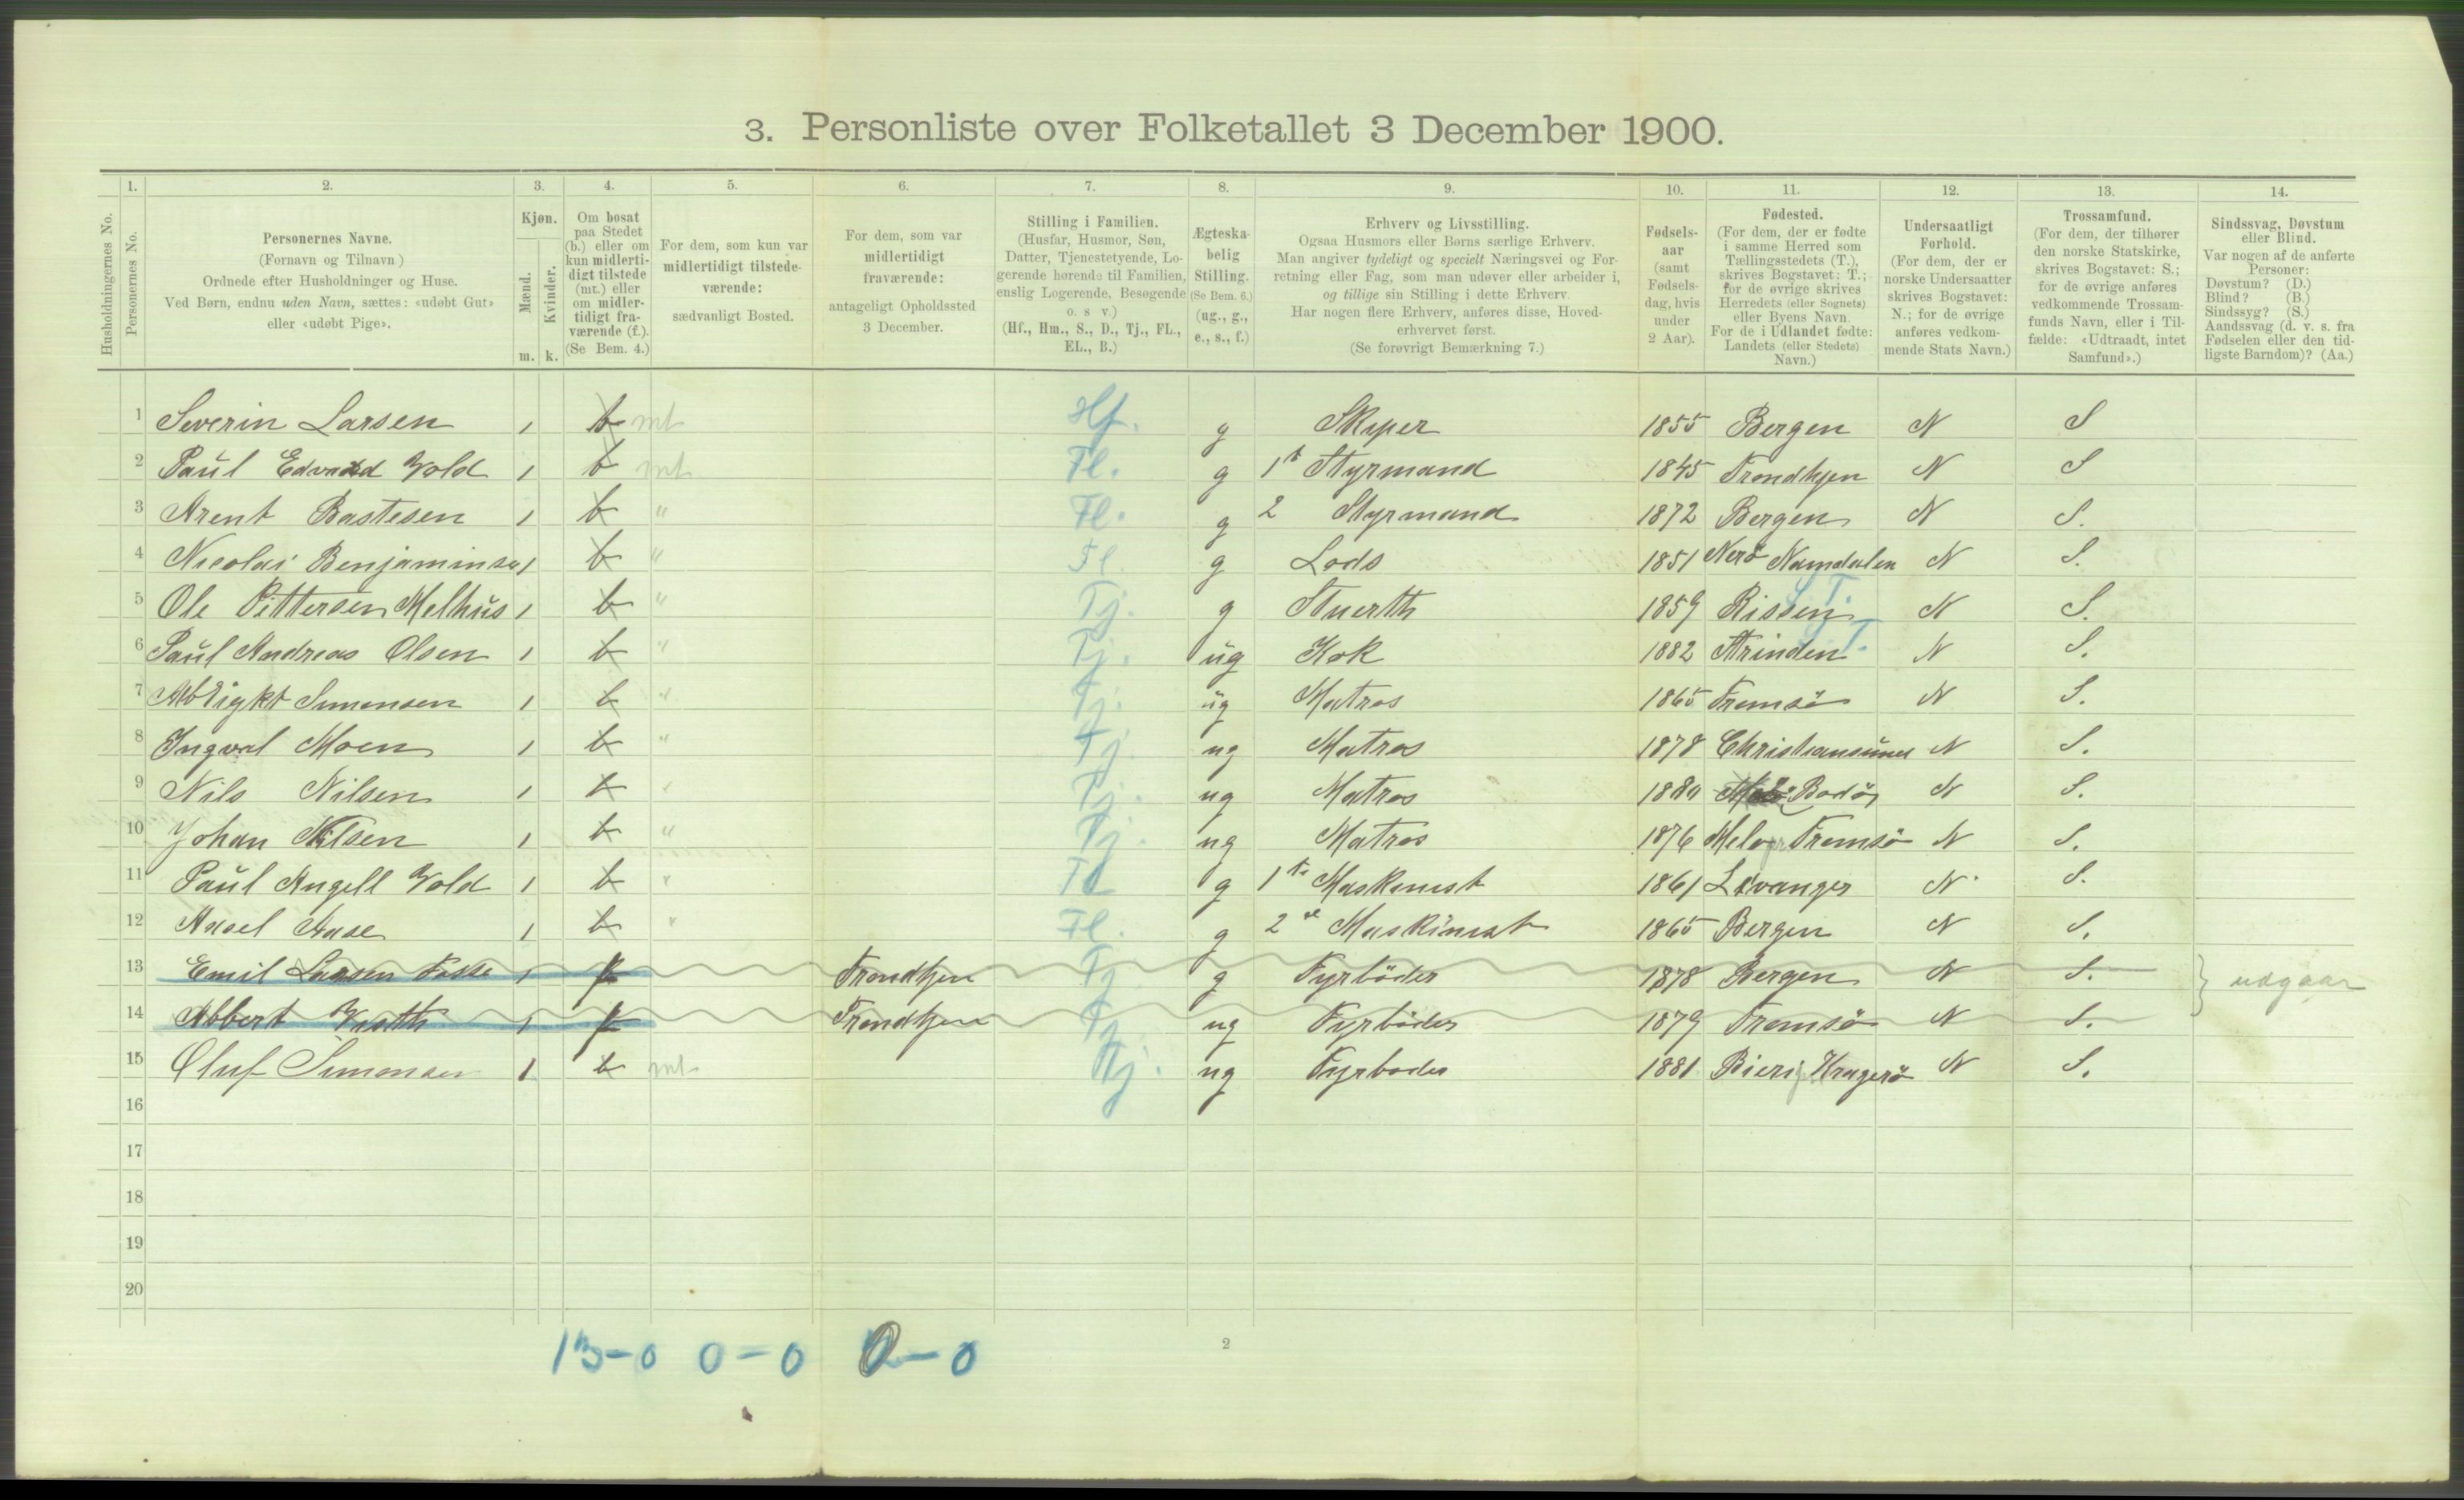 3. Personliste over Folketallet 3 December 1900.
Husholdningernes No.
1.
Personernes No.
2.
Personernes Navne.
(Fornavn og Tilnavn)
Ordnede efter Husholdninger og Huse.
Ved Børn, endnu uden Navn, sættes: «udøbt Gut»
eller «udøbt Pige».
3.
Kjøn.
Mænd.
Kvinder.
m. k.
4.
Om bosat
paa Stedet
(b.) eller om
kun midlerti-
digt tilstede
(mt.) eller
om midler-
tidigt fra-
værende (f.).
(Se Bem. 4.)
5.
For dem, som kun var
midlertidigt tilstede-
værende:
sædvanligt Bosted.
6.
For dem, som var
midlertidigt
fraværende:
antageligt Opholdssted
3 December.
7.
Stilling i Familien.
(Husfar, Husmor, Søn,
Datter, Tjenestetyende, Lo-
gerende hørende til Familien,
enslig Logerende, Besøgende
o. s v.)
(Hf., Hm., S., D., Tj., FL.,
EL., B.)
8.
Ægteska-
belig
Stilling.
(Se Bem. 6.)
(ug., g.,
e., s., f.)
9.
Erhverv og Livsstilling.
Ogsaa Husmors eller Børns særlige Erhverv.
Man angiver tydeligt og specielt Næringsvei og For-
retning eller Fag, som man udøver eller arbeider i,
og tillige sin Stilling i dette Erhverv.
Har nogen flere Erhverv, anføres disse, Hoved-
erhvervet først.
(Se forøvrigt Bemærkning 7.)
10.
Fødsels-
aar
(samt
Fødsels-
dag, hvis
under
2 Aar).
11.
Fødested.
(For dem, der er fødte
i samme Herred som
Tællingsstedets (T.),
skrives Bogstavet: T.;
for de øvrige skrives
Herredets (eller Sognets)
eller Byens Navn.
For de i Udlandet fødte:
Landets (eller Stedets)
Navn.)
12.
Undersaatligt
Forhold.
(For dem, der er
norske Undersaatter
skrives Bogstavet:
N.; for de øvrige
anføres vedkom-
mende Stats Navn.)
13.
Trossamfund.
(For dem, der tilhører
den norske Statskirke,
skrives Bogstavet: S.;
for de øvrige anføres
vedkommende Trossam-
funds Navn, eller i Til-
fælde: «Udtraadt, intet
Samfund».)
14.
Sindssvag, Døvstum
eller Blind.
Var nogen af de anførte
Personer:
Døvstum? (D.)
Blind? (B.)
Sindssyg? (S.)
Aandssvag (d. v. s. fra
Fødselen eller den tid-
ligste Barndom)? (Aa.)
1 Severin Larsen 1 b mt Hf. g Skiper 1855 Bergen N S
2 Paul Edvard Vold 1 b mt Fl. g 1t Styrmand 1845 Trondhjen N S
3 Arent Bastesen 1 b " Fl. g 2 Styrmand 1872 Bergen N S.
4 Nicolai Benjaminsen 1 b " Fl g Lods 1851 Nerö Namdalen N S.
5 Ole Pittersen Melhus 1 b " Tj. g Stuerth 1859 Rissen T. N S.
6 Paul Andreas Olsen 1 b " Tj. ug Kok 1882 Strinden T. N S.
7 Simonsen 1 b " Tj. ug Matros 1865 Tromsö N S.
8 Ingval Moen 1 b " Tj. ug Matros 1878 Christiansund N S.
9 Nils Nilsen 1 b " Tj. ug Matros 1880 Bodö N S.
10 Johan Nilsen 1 b " Tj. ug Matros 1876 Tromsö N S.
11 Paul Angell Vold 1 b " Fl g 1te Maskinist 1861 Levanger N S.
12 Aase 1 b " Fl. g 2de Maskinist 1865 Bergen N S.
13 Emil Larsen Fosse 1 f Trondhjen Tj g Fyrböder 1878 Bergen N S. } udgaar
14 Albbert 1 f Trondhjen Tj ug Fyrböder 1879 Tromsö N S.
15 Oluf Simonsen 1 b mt Tj. ug Fyrboder 1881 Kragerö N S.
16
17
18
19
20
13-0 0-0 0-0
2